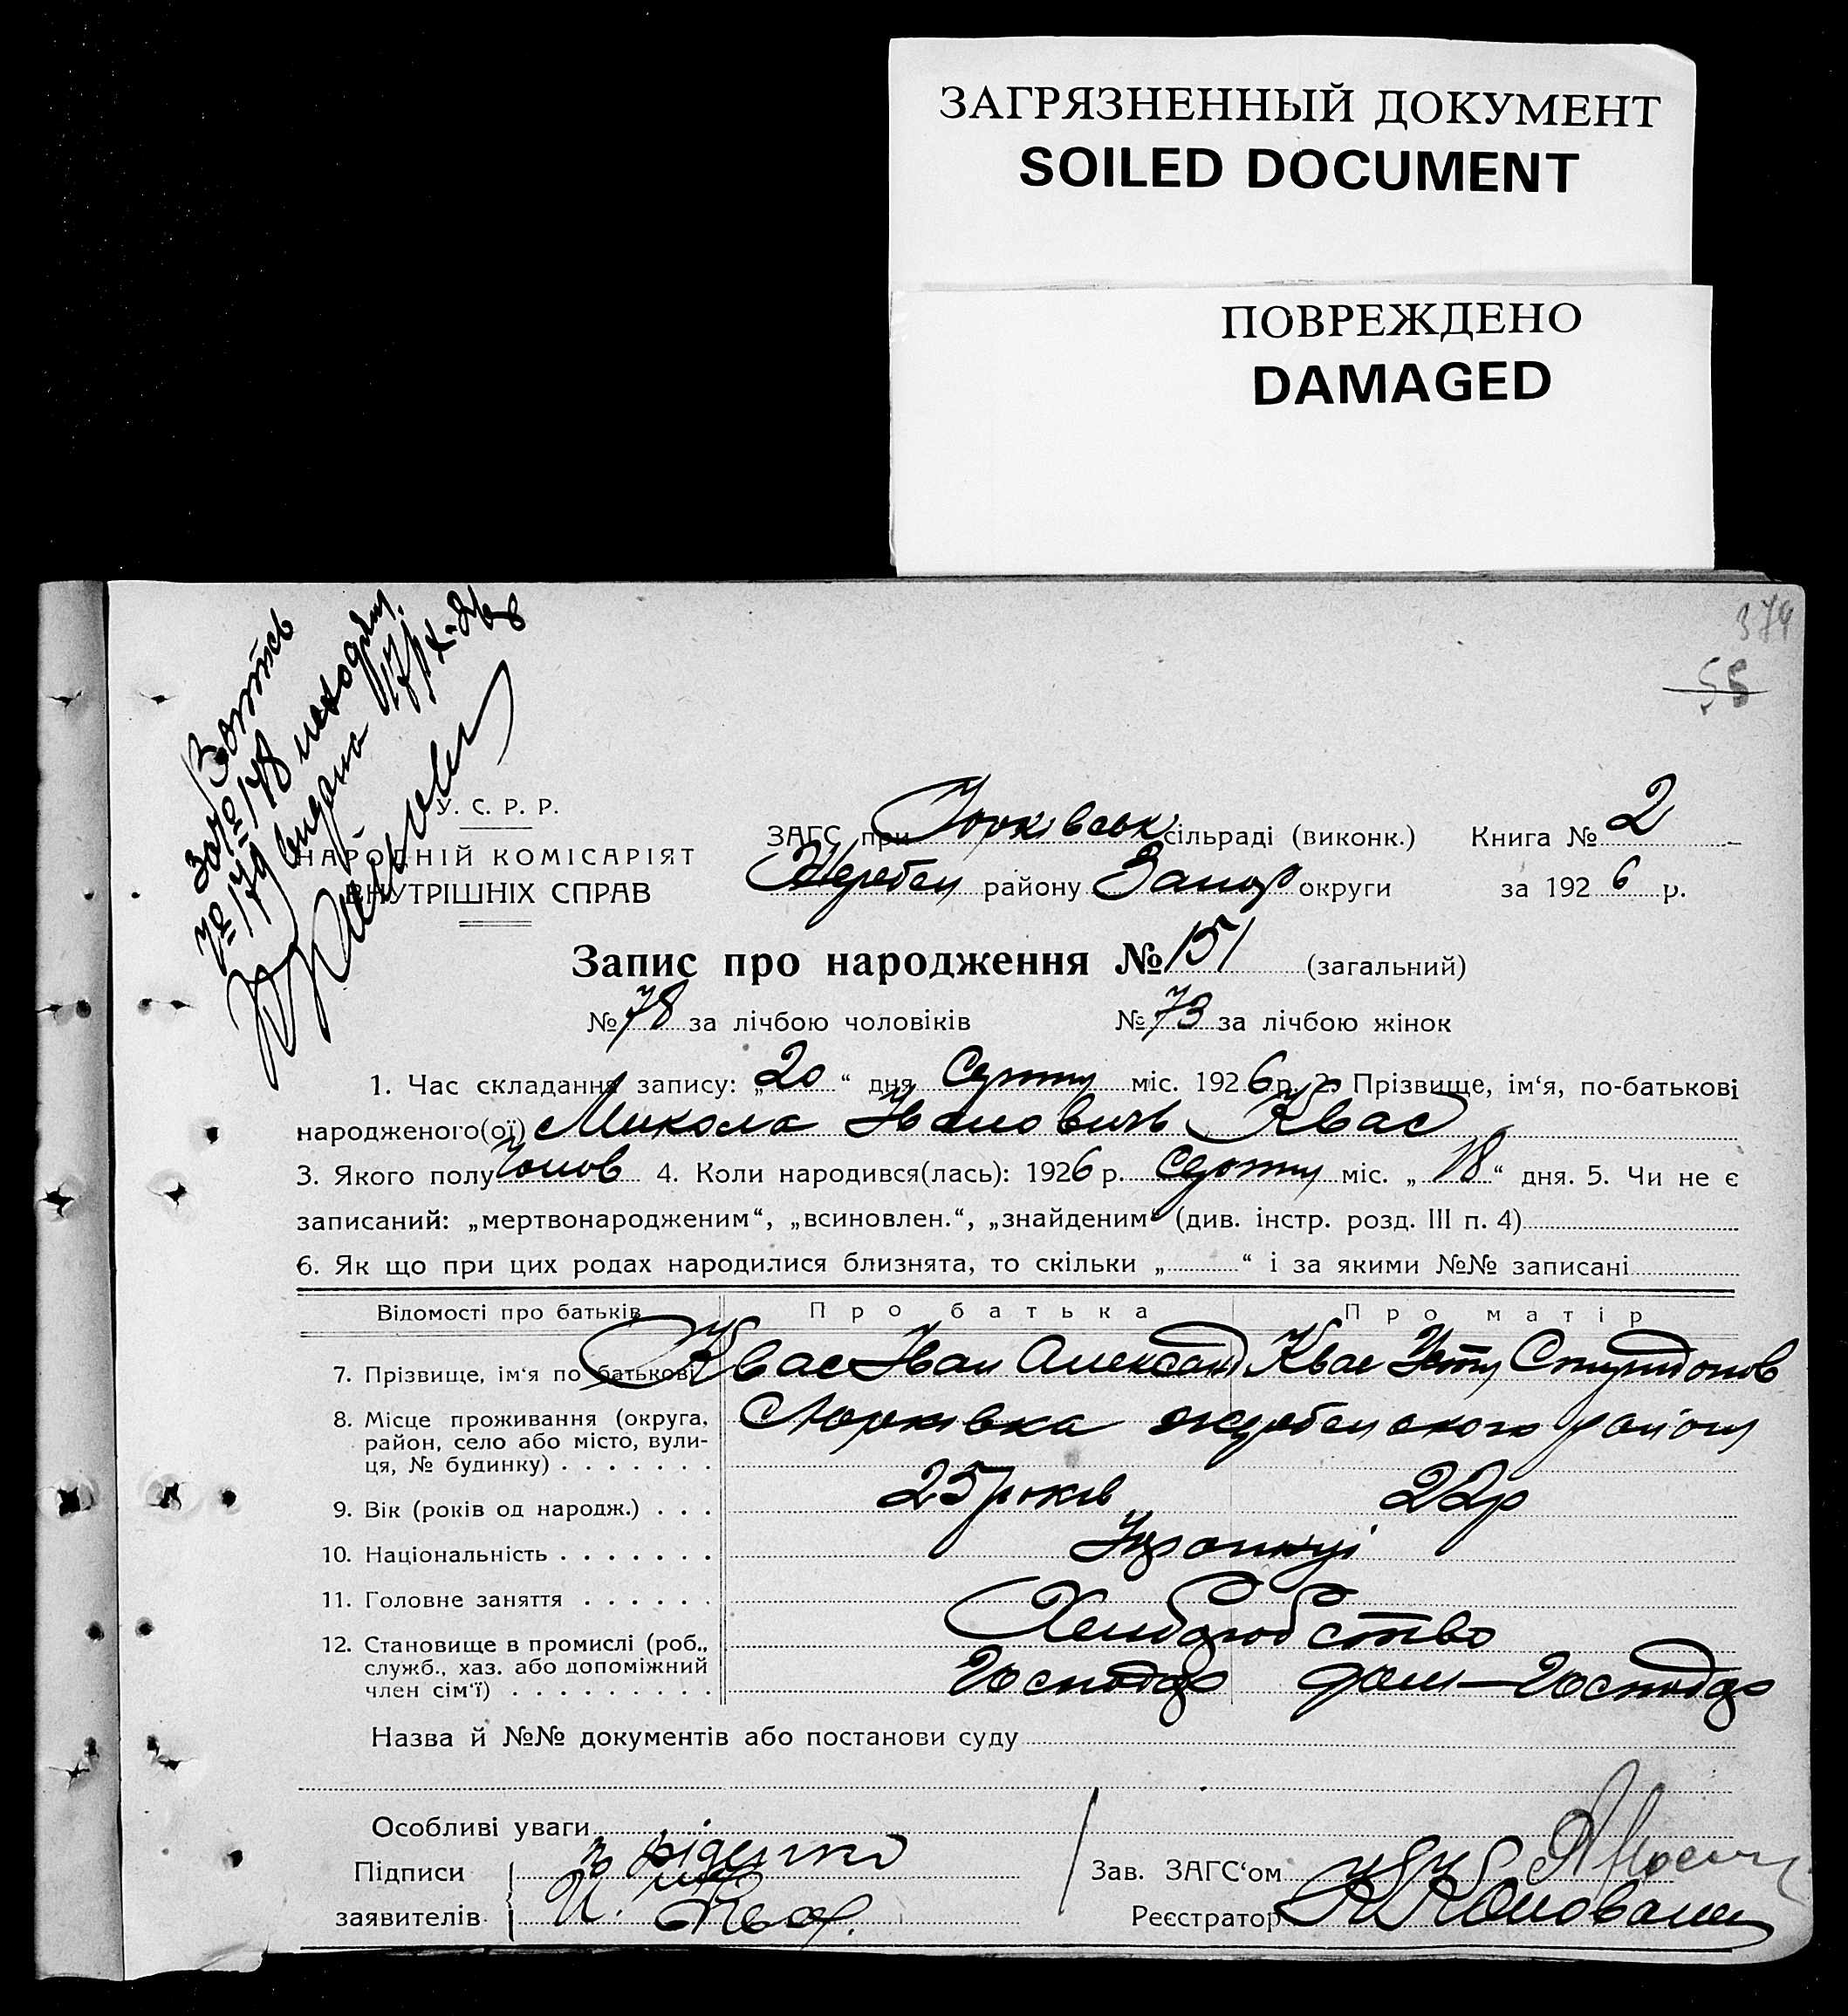 ЗАГРЯЗНЕННЫЙ ДОКУМЕНТ
SOILED DOCUMENT
ПОВРЕЖДЕНО
DAMAGED
374
55
№ 178
№ 179 видана
У. С. Р. Р.
НАРОДНІЙ КОМІСАРІЯТ
ВНУТРІШНІХ СПРАВ
ЗАГС при Юрківськ сільраді (виконк.) Книга № 2
Жеребец району Запор округи за 1926 р.
Запис про народження № 151 (загальний)
№ 78 за лічбою чоловіків № 73 за лічбою жінок
1. Час складання запису: „20“ дня Серпня міс. 1926 р. 2. Прізвище, ім‘я, по-батькові
народженого(ої) Микола Івановичь Квас
3. Якого полу чолов 4. Коли народився(лась): 1926 р. Серпня міс. „18“ дня. 5. Чи не є
записаний: „мертвонародженим“, „всиновлен.“, „знайденим“ (див. інстр. розд. III п. 4)
6. Як що при цих родах народилися близнята, то скільки „ “ і за якими №№ записані
Відомості про батьків Про батька Про матір
7. Прізвище, ім‘я по батькові Квас Іван Александ Квас Спиридонов
8. Місце проживання (округа, район, село або місто, вулиця, № будинку) Юрківка жеребецкого району
9. Вік (років од народж.) 25 років 22р
10. Національність Українці
11. Головне заняття Хлиборобство
12. Становище в промислі (роб., служб., хаз. або допоміжний член сім‘ї) Господар дом–Господар
Назва й №№ документів або постанови суду
Особливі уваги
Підписи
заявителів
Зав. ЗАГС‘ом
Реєстратор